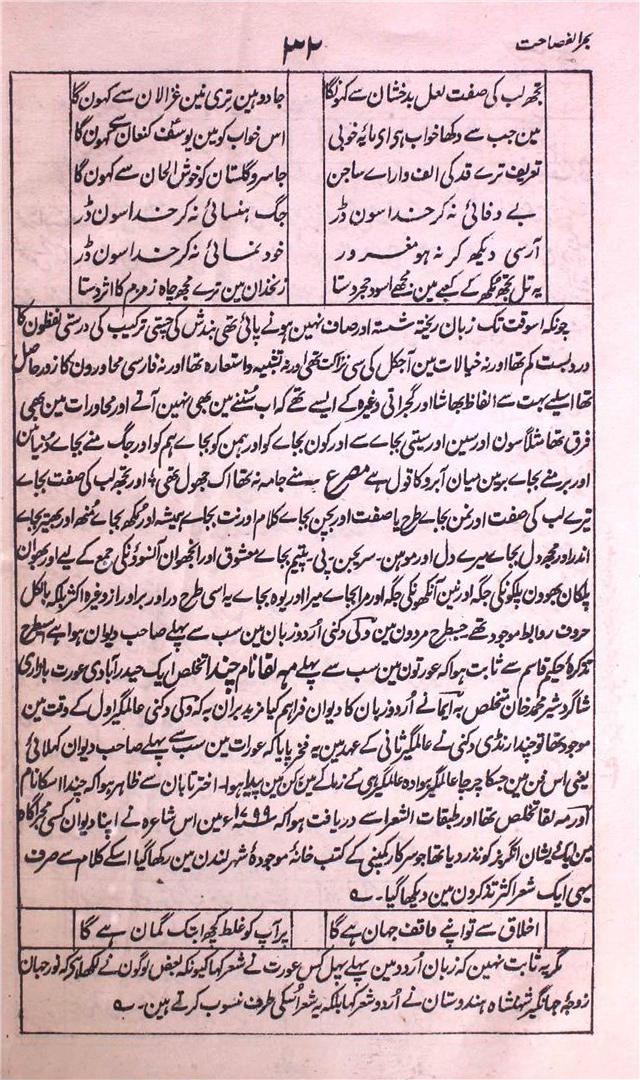 بحر الفصاحت
۳۲
تجھ لب کی صفت لعل بدخشان سے کہونگا جادو ہین تری نین غزالان سے کہون گا
مین جب سے دکھا خواب ہوا ای مایۂ خوبی اس خواب کو مین یوسف کنعان سے کہون گا
تعریف ترے قد کی الف وار اے ساجن جا سرو گلستان کو خوش الحان سے کہون گا
بے وفائی نہ کر خدا سون ڈر جگ ہنسائی نہ کر خدا سون ڈر
آرسی دیکھ کر نہ ہو مغرور خود نمائی نہ کر خدا سون ڈر
یہ تل تجھ مکھ کے کعبے مین مجھے اسود حجر دستا زنخدان مین ترے مجھ چاہ زمزم کا اثر دستا
چونکہ اسوقت تک زبان ریختہ شستہ اور صاف نہین ہونے پائی تھی بندش کی چستی ترکیب کی درستی لفظون کا
در و بست کم تھا اور نہ خیالات مین آجکل کی سی نزاکت تھی اور نہ تشبیہ و استعارہ تھا اور نہ فارسی محاورون کا زور حاصل
تھا اسلیے بہت سے الفاظ بھاشا اور گجراتی وغیرہ کے ایسے تھے کہ اب سُننے مین بھی نہین آتے اور محاورات مین بھی
فرق تھا مثلاً سون اور سین اور سیتی بجاے سے اور کون بجاے کو اور ہمن کو بجاے ہم کو اور جگ منے بجاے دُنیا مین
اور بر منے بجاے بر مین میان آبرو کا قول ہے مصرع منے جامہ نہ تھا اک جھول تھی ؛ اور تجھ لب کی صفت بجاے
تیرے لب کی صفت اور نمن بجاے طرح یا صفت اور بچن بجاے کلام اور نت بجاے ہمیشہ اور مُکھ بجاے مُنھ اور بھیتر بجاے
اندر اور مجھ دل بجاے میرے دل اور موہن۔ سریجن۔ پی۔ پیتم بجاے معشوق اور انجھوان آنسوؤنکی جمع کے لیے اور بھوان
پلکان بھوون پلکونکی جگہ اور نین آنکھونکی جگہ اور مرا بجاے میرا اور یوہ بجاے یہ اسی طرح در اور بر اور از وغیرہ اکثر بلکہ بالکل
حروف روابط موجود تھے۔ جسطرح مردون مین ولی دکنی اُردو زبان مین سب سے پہلے صاحب دیوان ہوا ہے اسیطرح
تذکرۂ حکیم قاسم سے ثابت ہوا کہ عورتون مین سب سے پہلے مہ لقا نام چندا تخلص ایک حیدرآبادی عورت بازاری
شاگرد شیر محمد خان متخلص بہ ایما نے اُردو زبان کا دیوان فراہم کیا مزید بران یہ کہ ولی دکنی عالمگیر اول کے وقت مین
موجود تھا تو چندا رنڈی دکنی نے عالمگیر ثانی کے عہد مین یہ فخر پایا کہ عورات مین سب سے پہلے صاحب دیوان کہلائی
یعنی اس فن مین جسکا چرچا عالمگیر ہوا وہ عالمگیر ہی کے زمانے مین دکن مین پیدا ہوا۔ اختر تابان سے ظاہر ہوا کہ چندا اسکا نام
اور مہ لقا تخلص تھا اور طبقات الشعرا سے دریافت ہوا کہ ۱۷۹۹ء مین اس شاعرہ نے اپنا دیوان کسی مجراگاہ
مین ایک ذیشان انگریز کو نذر دیا تھا جو سرکار کمپنی کے کتب خانۂ موجودۂ شہر لندن مین رکھا گیا اسکے کلام سے صرف
یہی ایک شعر اکثر تذکرون مین دیکھا گیا۔
اخلاق سے تو اپنے واقف جہان ہے گا پر آپ کو غلط کچھ ابتک گمان ہے گا
مگر یہ ثابت نہین کہ زبان اُردو مین پہلے پہل کس عورت نے شعر کہا کیونکہ بعض لوگون نے لکھا ہے کہ نور جہان
زوجۂ جہانگیر شہنشاہ ہندوستان نے اُردو شعر کہا بلکہ یہ شعر اُسکی طرف منسوب کرتے ہین۔